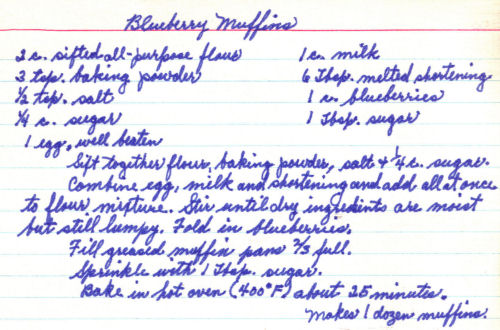 Blueberry Muffins
2 c. sifted all-purpose flour
3 tsp. baking powder
½ tsp. salt
¼ c. sugar
1 egg, well beaten
1 c. milk
6 Tbsp. melted shortening
1 c. blueberries
1 Tbsp. sugar
Sift together flour, baking powder, salt & ¼ c. sugar.
Combine egg, milk and shortening and add all at once
to flour mixture. Stir until dry ingredients are moist
but still lumpy. Fold in blueberries.
Fill greased muffin pans ⅔ full.
Sprinkle with 1 Tbsp. sugar.
Bake in hot oven (400°F) about 25 minutes.
Makes 1 dozen muffins.